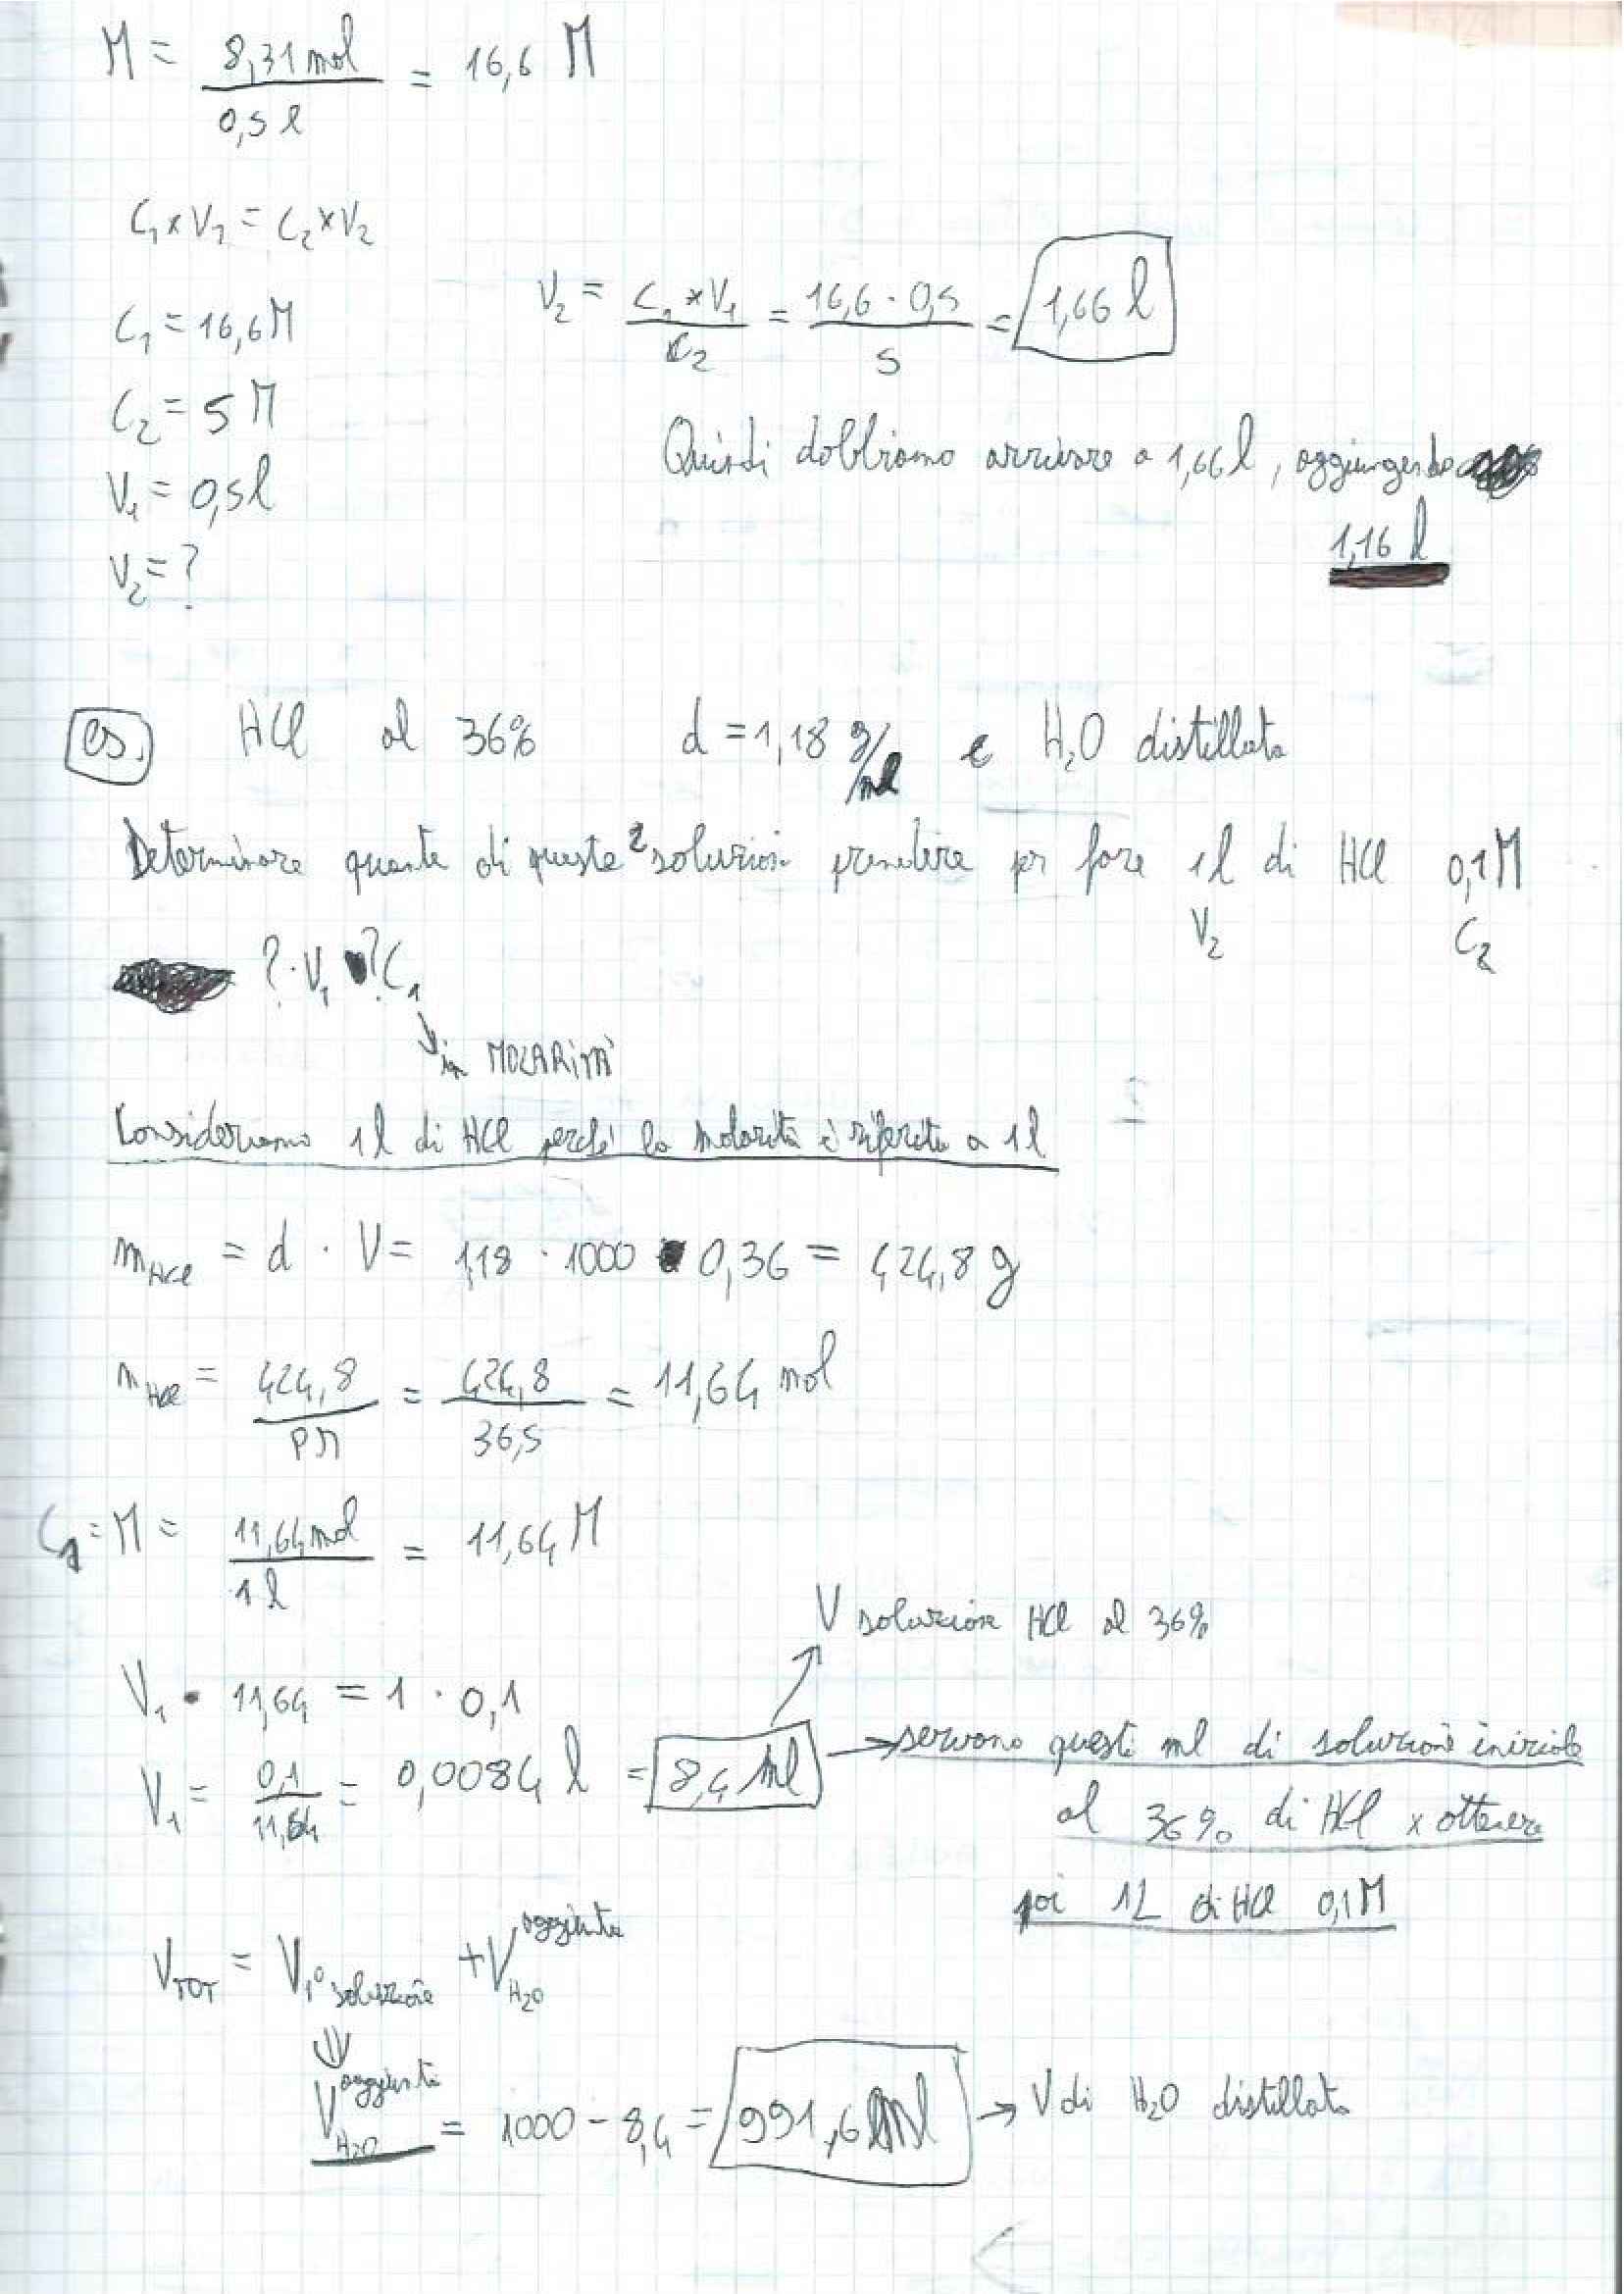 M = 8,31 mol / 0,5 l = 16,6 M
C₁ x V₁ = C₂ x V₂
V₂ = C₁ x V₁ / C₂ = 16,6 · 0,5 / 5 = 1,66 l
C₁ = 16,6 M
C₂ = 5 M
Quindi dobbiamo arrivare a 1,66 l, aggiungendo
V₁ = 0,5 l
1,16 l
V₂ = ?
es. HCl al 36% d = 1,18 g/ml e H₂O distillata
Determinare quante di queste 2 soluzioni prendere per fare 1 l di HCl 0,1 M
V₂ C₂
? · V₁ ? C₁
in MOLARITÀ
Consideriamo 1 l di HCl perché la molarità è riferita a 1 l
m HCl = d · V = 1,18 · 1000 · 0,36 = 424,8 g
n HCl = 424,8 / PM = 424,8 / 36,5 = 11,64 mol
C₁ = M = 11,64 mol / 1 l = 11,64 M
V soluzione HCl al 36%
V₁ · 11,64 = 1 · 0,1
V₁ = 0,1 / 11,64 = 0,0084 l = 8,4 ml → servono questi ml di soluzione iniziale
al 36% di HCl x ottenere
poi 1L di HCl 0,1 M
V TOT = V 1° soluzione + V H₂O aggiunta
V H₂O aggiunta = 1000 - 8,4 = 991,6 ml → V di H₂O distillata